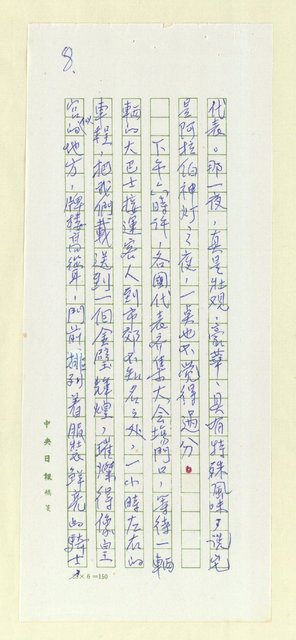 8.
代表。那一夜，真是壯观、豪華、具有特殊風味，說它
是阿拉伯神灯之夜，一点也不覚得過分。
下午六時許，各國代表齐集大会場門口，等待一輛
輛的大巴士接運客人到市郊不知名之处，一小時左右的
車程，把我們載送到一個金壁輝煌，璀燦得像皇
宮似的地方，牌樓高聳，門前排列着服裝鮮亮的騎士
中央日報稿箋
× 6 = 150